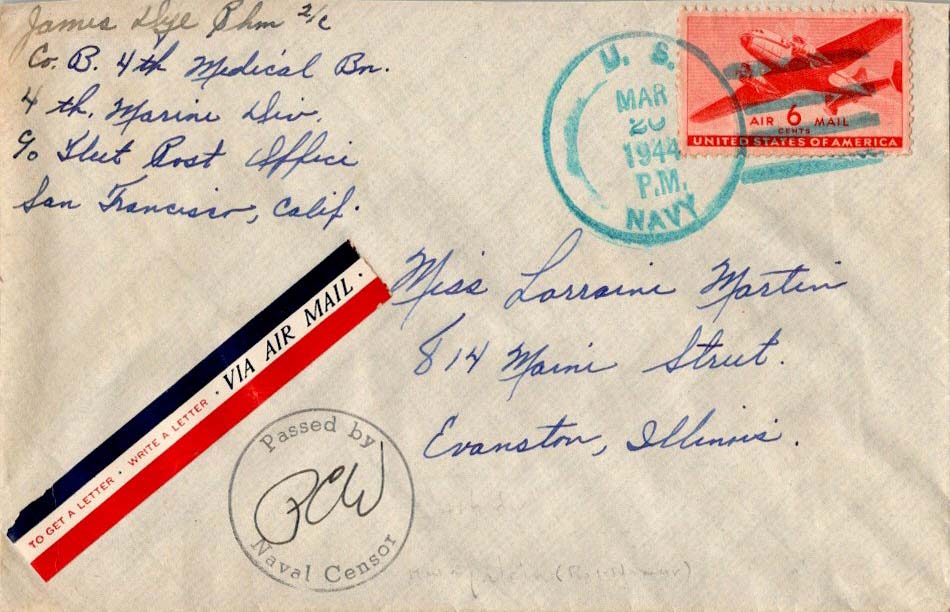 James Dye Phm 2/c
Co. B. 4th Medical Bn.
4th. Marine Div.
℅ Fleet Post Office
San Francisco, Calif.
U. S.
MAR
20
1944
P.M.
NAVY
AIR 6 MAIL
CENTS
UNITED STATES OF AMERICA
Miss Lorraine Martin
814 Maine Street.
Evanston, Illinois.
TO GET A LETTER · WRITE A LETTER · VIA AIR MAIL ·
Passed by
PCW
Naval Censor